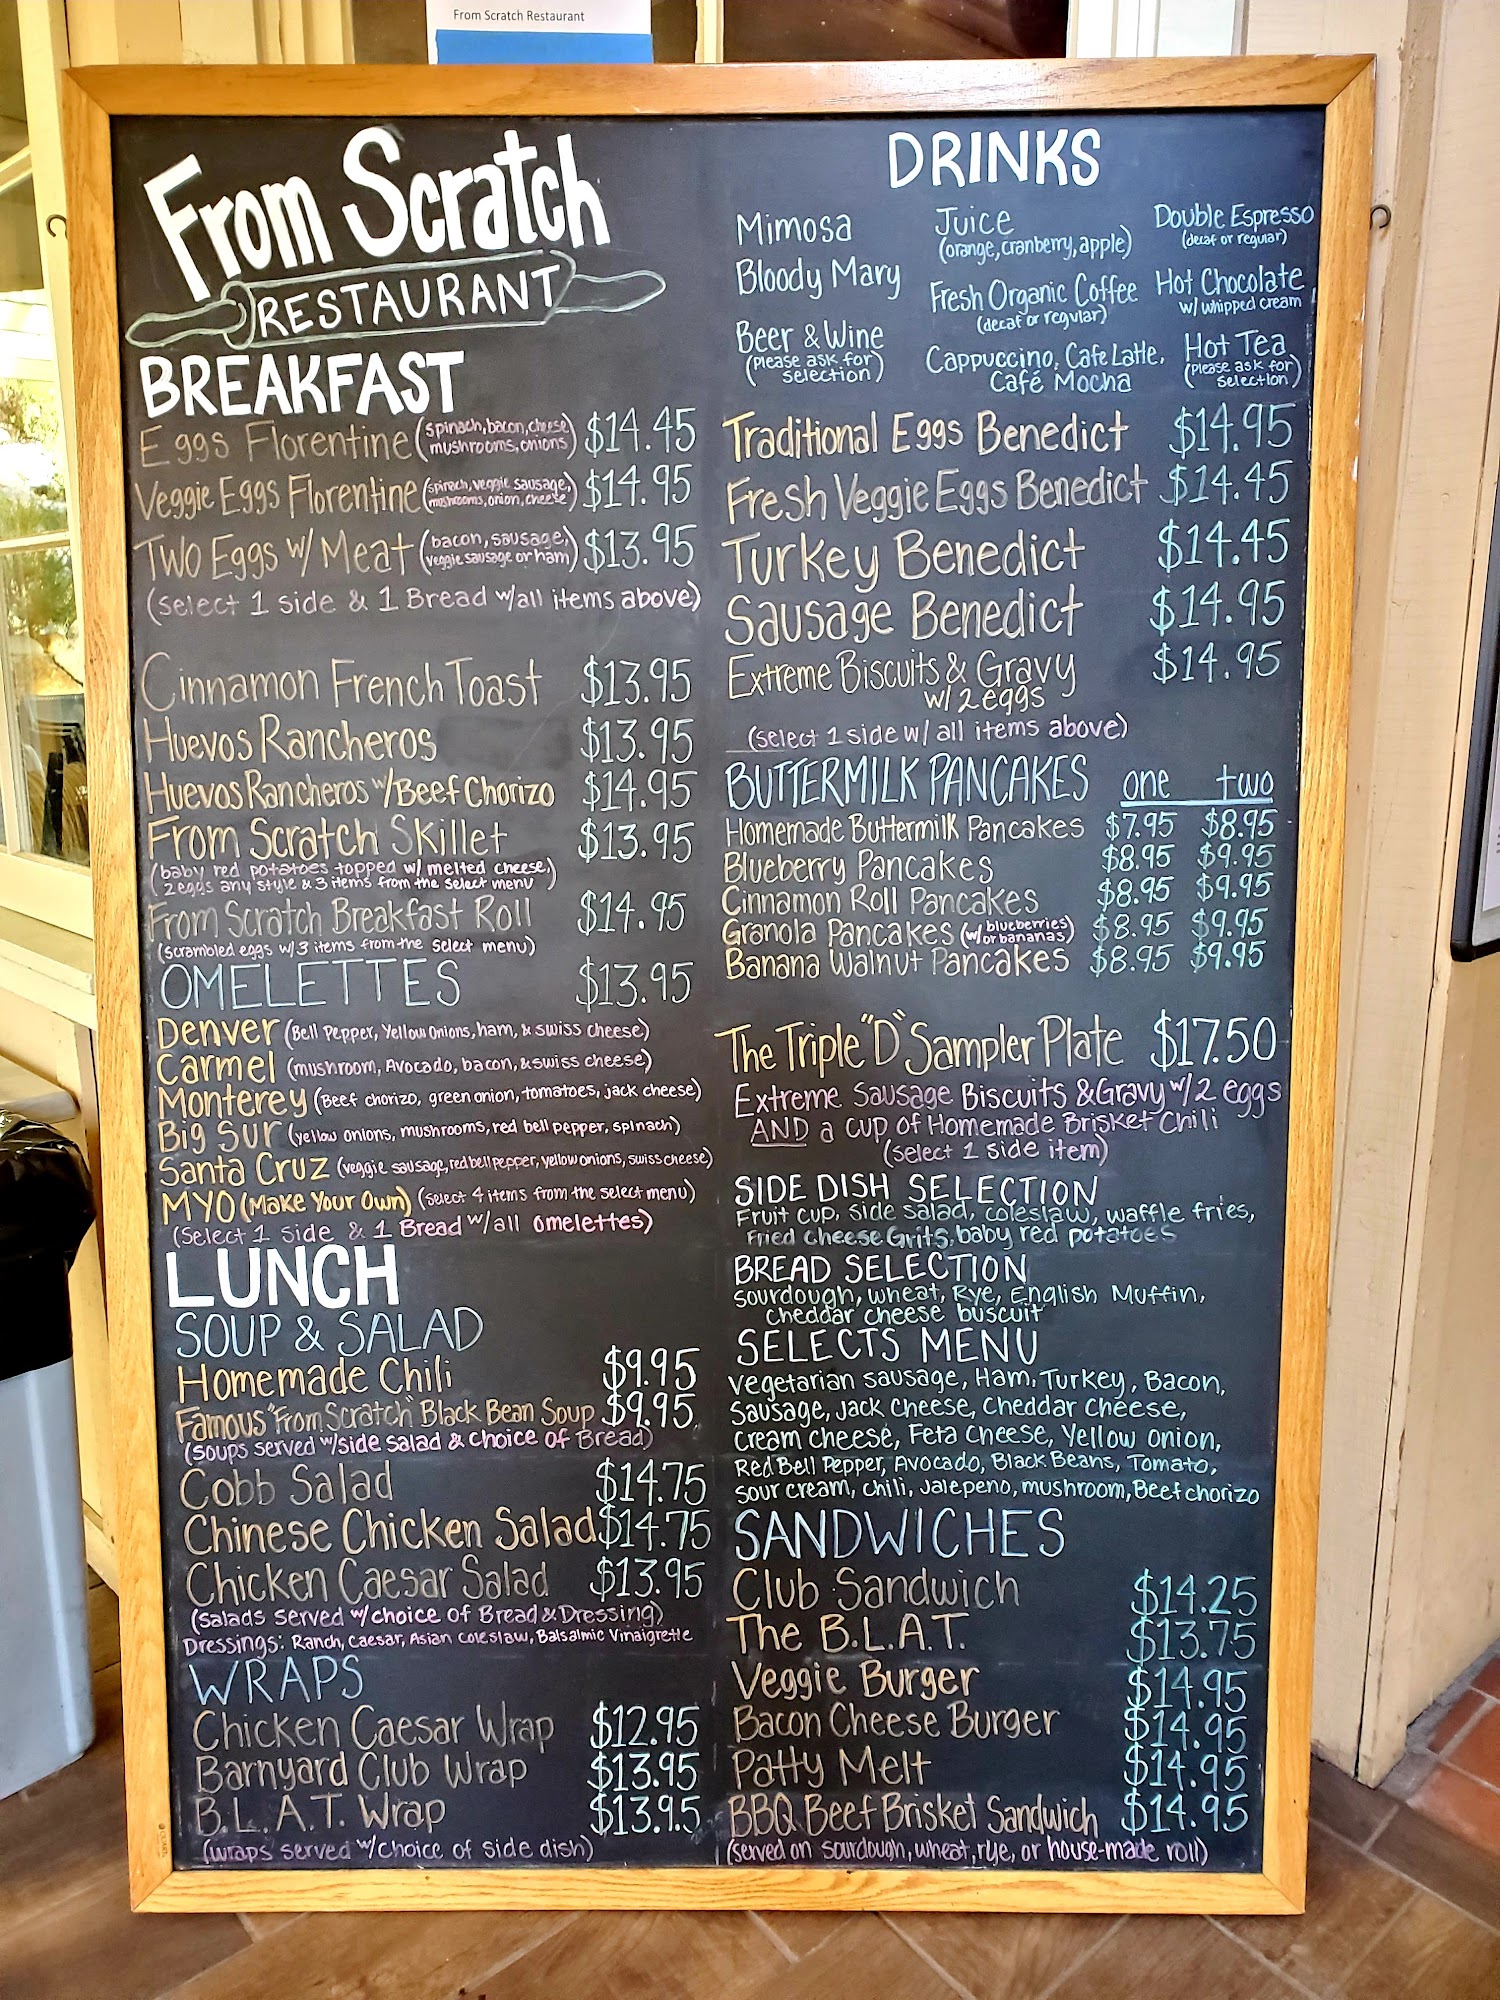 From Scratch Restaurant
From Scratch
RESTAURANT
BREAKFAST
Eggs Florentine (spinach, bacon, cheese, mushrooms, onions) $14.45
Veggie Eggs Florentine (spinach, veggie sausage, mushrooms, onion, cheese) $14.95
Two Eggs w/ Meat (bacon, sausage, veggie sausage or ham) $13.95
(select 1 side & 1 Bread w/all items above)
Cinnamon French Toast $13.95
Huevos Rancheros $13.95
Huevos Rancheros w/Beef Chorizo $14.95
From Scratch Skillet $13.95
(baby red potatoes topped w/ melted cheese,
2 eggs any style & 3 items from the select menu)
From Scratch Breakfast Roll $14.95
(scrambled eggs w/3 items from the select menu)
OMELETTES $13.95
Denver (Bell Pepper, Yellow Onions, ham, & swiss cheese)
Carmel (mushroom, Avocado, bacon, & swiss cheese)
Monterey (Beef chorizo, green onion, tomatoes, jack cheese)
Big Sur (yellow onions, mushrooms, red bell pepper, spinach)
Santa Cruz (veggie sausage, red bell pepper, yellow onions, swiss cheese)
MYO (Make Your Own) (select 4 items from the select menu)
(Select 1 side & 1 Bread w/all omelettes)
LUNCH
SOUP & SALAD
Homemade Chili $9.95
Famous "From Scratch" Black Bean Soup $9.95
(soups served w/side salad & choice of Bread)
Cobb Salad $14.75
Chinese Chicken Salad $14.75
Chicken Caesar Salad $13.95
(Salads served w/choice of Bread & Dressing)
Dressings: Ranch, Caesar, Asian coleslaw, Balsalmic Vinaigrette
WRAPS
Chicken Caesar Wrap $12.95
Barnyard Club Wrap $13.95
B.L.A.T. Wrap $13.95
(wraps served w/choice of side dish)
DRINKS
Mimosa
Bloody Mary
Beer & Wine
(Please ask for
selection)
Juice
(orange, cranberry, apple)
Fresh Organic Coffee
(decaf or regular)
Cappuccino, Cafe Latte,
Café Mocha
Double Espresso
(decaf or regular)
Hot Chocolate
w/ whipped cream
Hot Tea
(Please ask for
selection)
Traditional Eggs Benedict $14.95
Fresh Veggie Eggs Benedict $14.45
Turkey Benedict $14.45
Sausage Benedict $14.95
Extreme Biscuits & Gravy $14.95
w/ 2 eggs
(select 1 side w/ all items above)
BUTTERMILK PANCAKES one two
Homemade Buttermilk Pancakes $7.95 $8.95
Blueberry Pancakes $8.95 $9.95
Cinnamon Roll Pancakes $8.95 $9.95
Granola Pancakes (w/ blueberries or bananas) $8.95 $9.95
Banana Walnut Pancakes $8.95 $9.95
The Triple "D" Sampler Plate $17.50
Extreme Sausage Biscuits & Gravy w/2 eggs
AND a cup of Homemade Brisket Chili
(select 1 side item)
SIDE DISH SELECTION
Fruit cup, side salad, coleslaw, waffle fries,
Fried Cheese Grits, baby red potatoes
BREAD SELECTION
sourdough, wheat, Rye, English Muffin,
cheddar cheese buscuit
SELECTS MENU
vegetarian sausage, Ham, Turkey, Bacon,
Sausage, Jack Cheese, Cheddar Cheese,
Cream cheese, Feta Cheese, Yellow onion,
Red Bell Pepper, Avocado, Black Beans, Tomato,
sour cream, chili, Jalepeno, mushroom, Beef chorizo
SANDWICHES
Club Sandwich $14.25
The B.L.A.T. $13.75
Veggie Burger $14.95
Bacon Cheese Burger $14.95
Patty Melt $14.95
BBQ Beef Brisket Sandwich $14.95
(served on sourdough, wheat, rye, or house-made roll)